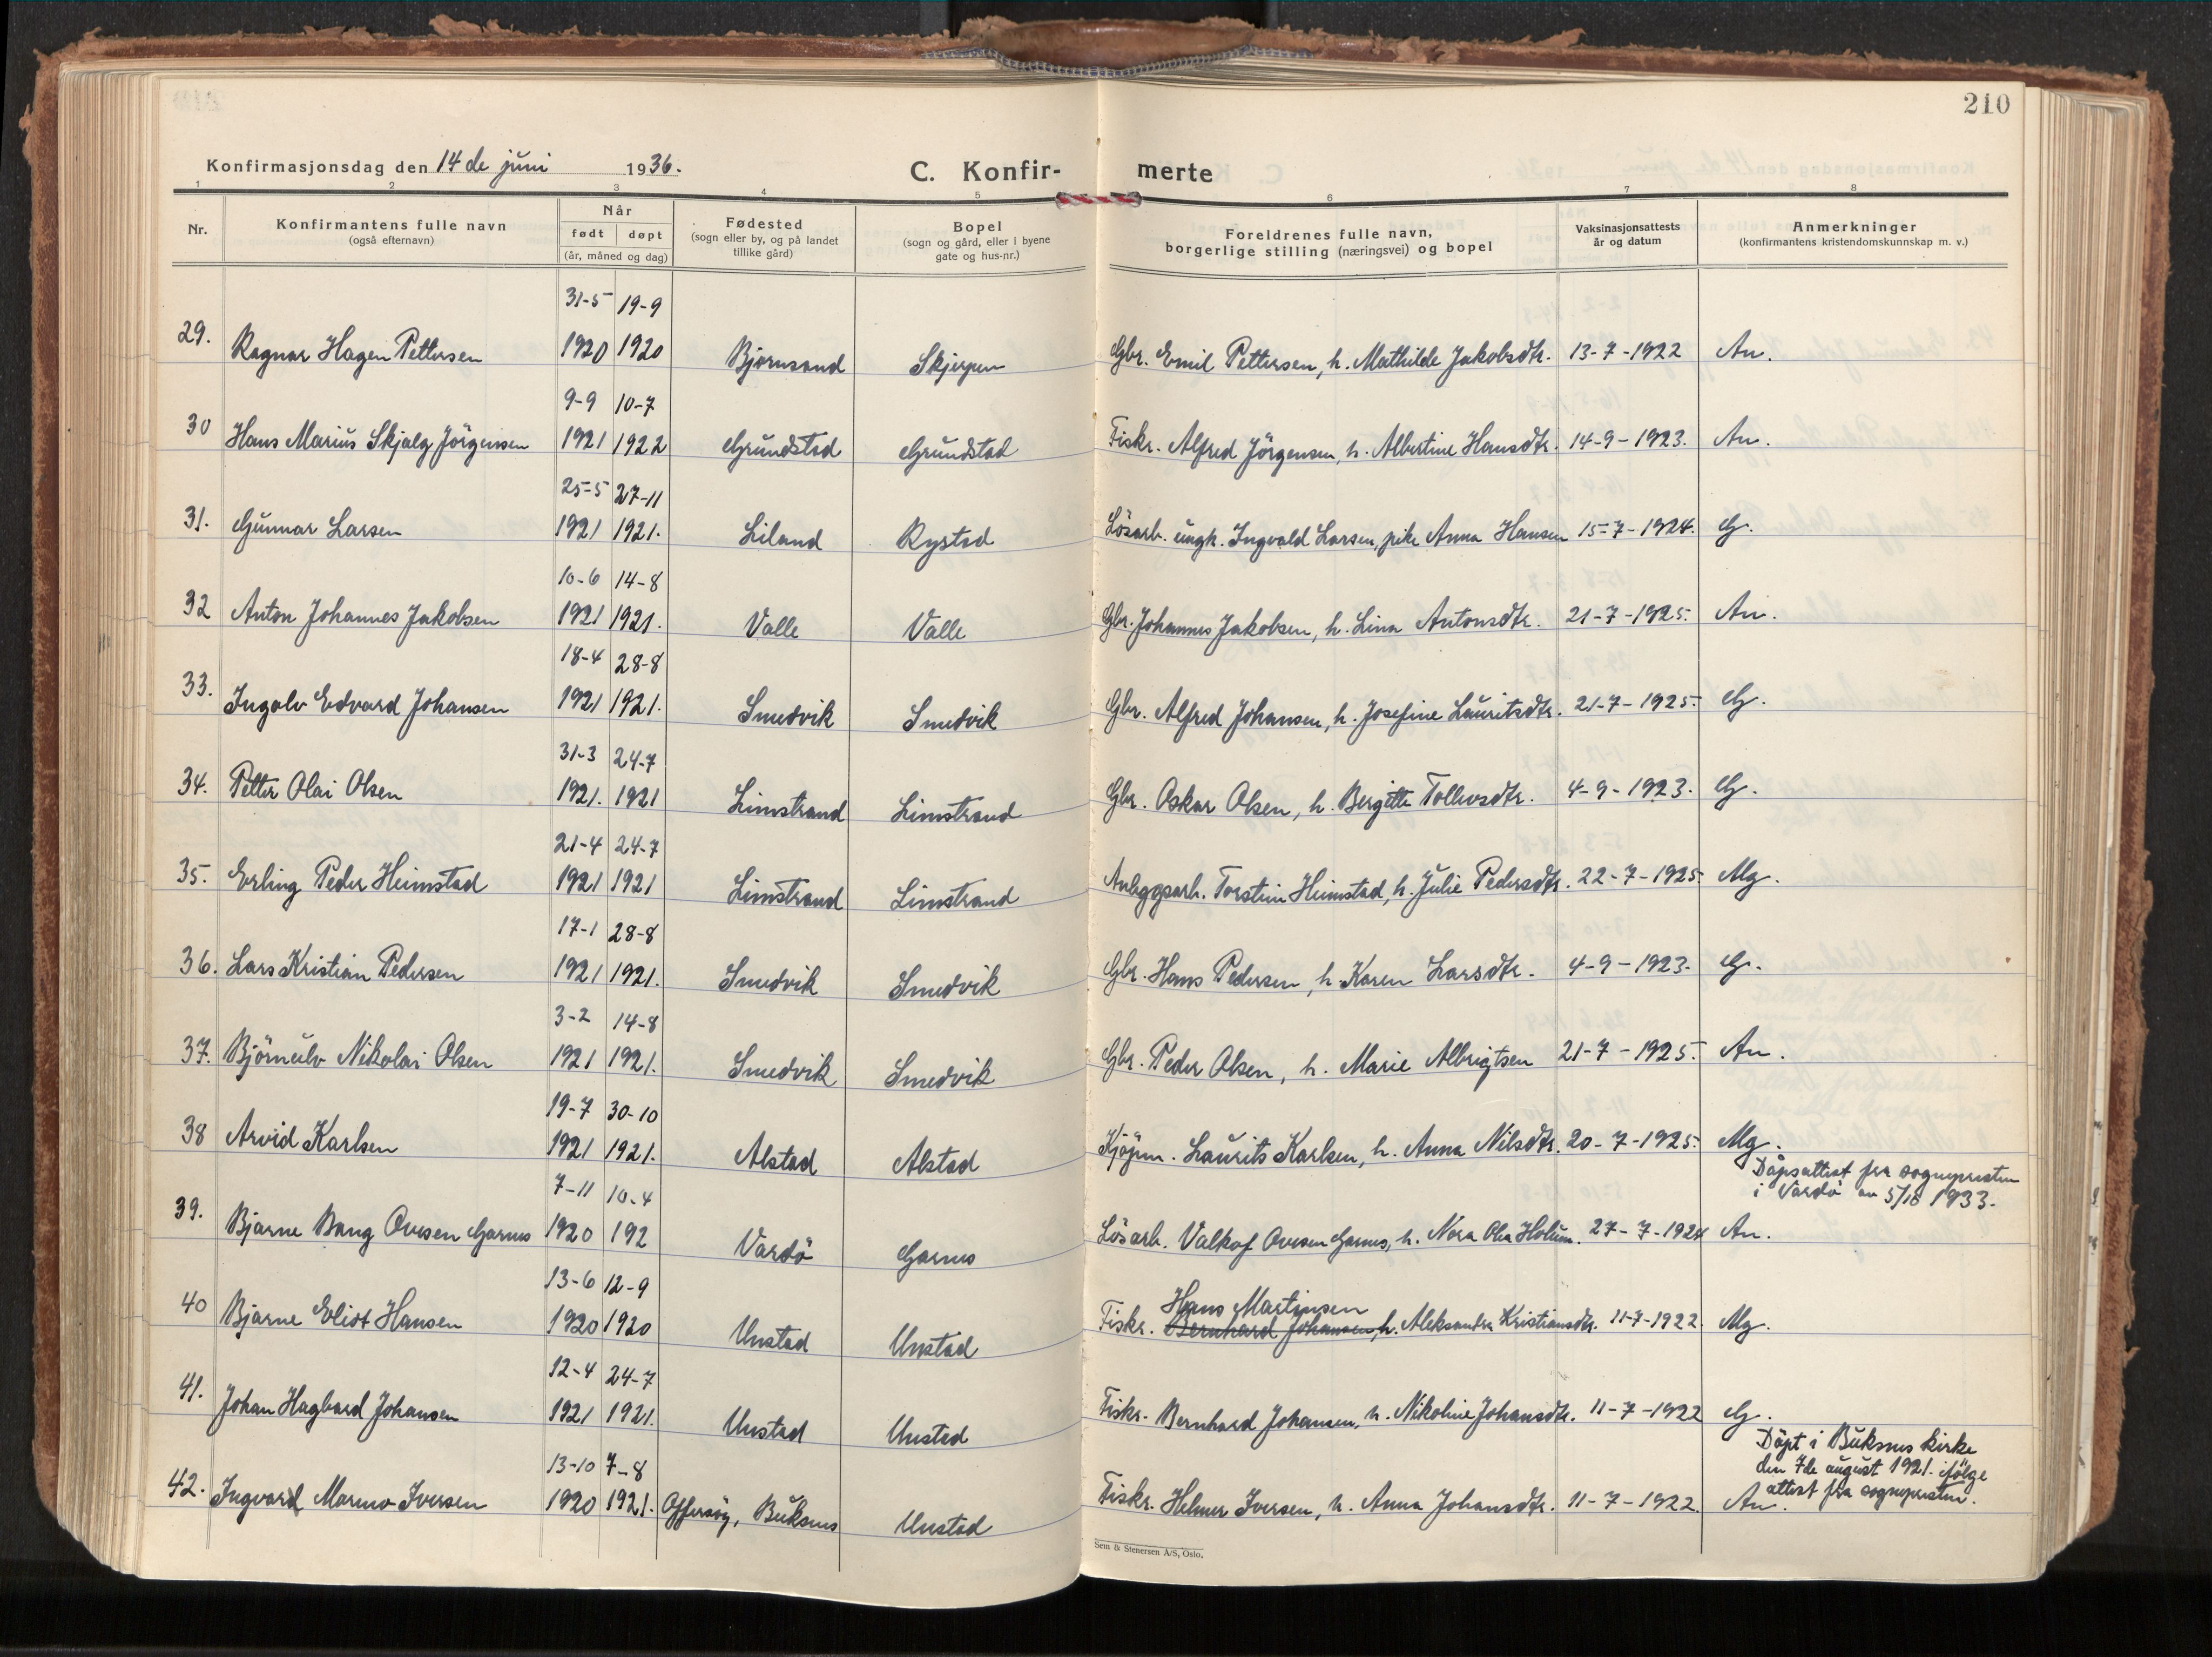 210
Konfirmasjonsdag den 14 de juni 1936.
C. Konfir-
merte
1 2 3 4 5 6 7 8
Nr.
Konfirmantens fulle navn
(også efternavn)
Når
født døpt
(år, måned og dag)
Fødested
(sogn eller by, og på landet
tillike gård)
Bopel
(sogn og gård, eller i byene
gate og hus-nr.)
Foreldrenes fulle navn,
borgerlige stilling (næringsvei) og bopel
Vaksinasjonsattests
år og datum
Anmerkninger
(konfirmantens kristendomskunnskap m. v.)
31-5 19-9
29. Ragnar Hagen Pettersen 1920 1920 Bjørnsand Skjerpen Gbr. Emil Pettersen, h. Mathilde Jakobsdtr. 13-7-1922 An.
9-9 10-7
30 Hans Marius Skjalg Jörgensen 1921 1922 Grundstad Grundstad Fiskr. Alfred Jörgensen, h. Albertine Hansdtr. 14-9-1923. An.
25-5 27-11
31. Gunnar Larsen 1921 1921. Liland Rystad Lösarb. ungk. Ingvald Larsen, pike Anna Hansen 15-7-1924. G.
10-6 14-8
32 Anton Johannes Jakobsen 1921 1921. Valle Valle Gbr. Johannes Jakobsen, h. Lina Antonsdtr. 21-7-1925. An.
18-4 28-8
33. Ingolv Edvard Johansen 1921 1921. Smedvik Smedvik Gbr. Alfred Johansen, h. Josefine Lauritsdtr. 21-7-1925. G.
31-3 24-7
34. Petter Olai Olsen 1921. 1921 Limstrand Limstrand Gbr. Oskar Olsen, h. Bergitte Tollevsdtr. 4-9-1923. G.
21-4 24-7
35. Erling Peder Heimstad 1921 1921 Limstrand Limstrand Anleggsarb. Torstein Heimstad, h. Julie Pedersdtr. 22-7-1925. Mg.
17-1 28-8
36. Lars Kristian Pedersen 1921 1921. Smedvik Smedvik Gbr. Hans Pedersen, h. Karen Larsdtr. 4-9-1923. G.
3-2 14-8
37. Björnulv Nikolai Olsen 1921 1921. Smedvik Smedvik Gbr. Peder Olsen, h. Marie Albrigtsen 21-7-1925. An.
19-7 30-10
38 Arvid Karlsen 1921 1921. Alstad Alstad Kjöpm. Laurits Karlsen, h. Anna Nilsdtr. 20-7-1925. Mg.
Dåpsattest fra sognepresten
i Vardö av 5/10 1933.
7-11 10-4
39. Bjarne Bang Ovesen Garnes 1920 192 Vardö Garnes Lösarb. Valkof Ovesen Garnes, h. Nora Olea Holum. 27-7-1924 An.
13-6 12-9
Hans Martinsen
40 Bjarne Eliot Hansen 1920 1920 Unstad Unstad Fiskr. Bernhard Johansen, h. Aleksandra Kristiansdtr. 11-7-1922. Mg.
12-4 24-7
41. Johan Hagbard Johansen 1921 1921. Unstad Unstad Fiskr. Bernhard Johansen, h. Nikoline Johansdtr. 11-7-1922 G.
Döpt i Buksnes kirke
den 7de august 1921. ifölge
attest fra sognepresten.
13-10 7-8
42. Ingvard Marino Iversen 1920 1921. Offersöy, Buksnes Unstad Fiskr. Helmer Iversen, h. Anna Johansdtr. 11-7-1922. An.
Sem & Stenersen A/S, Oslo.